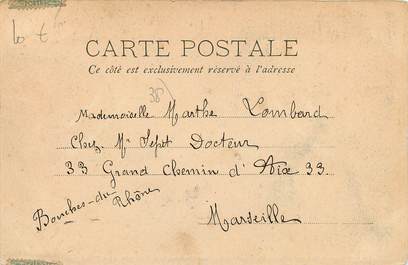 CARTE POSTALE
Ce côté est exclusivement réservé à l'adresse
38
Mademoiselle Marthe Lombard
Chez Mr Sepet Docteur
33 Grand Chemin d'Aix 33.
Bouches-du-Rhône
Marseille